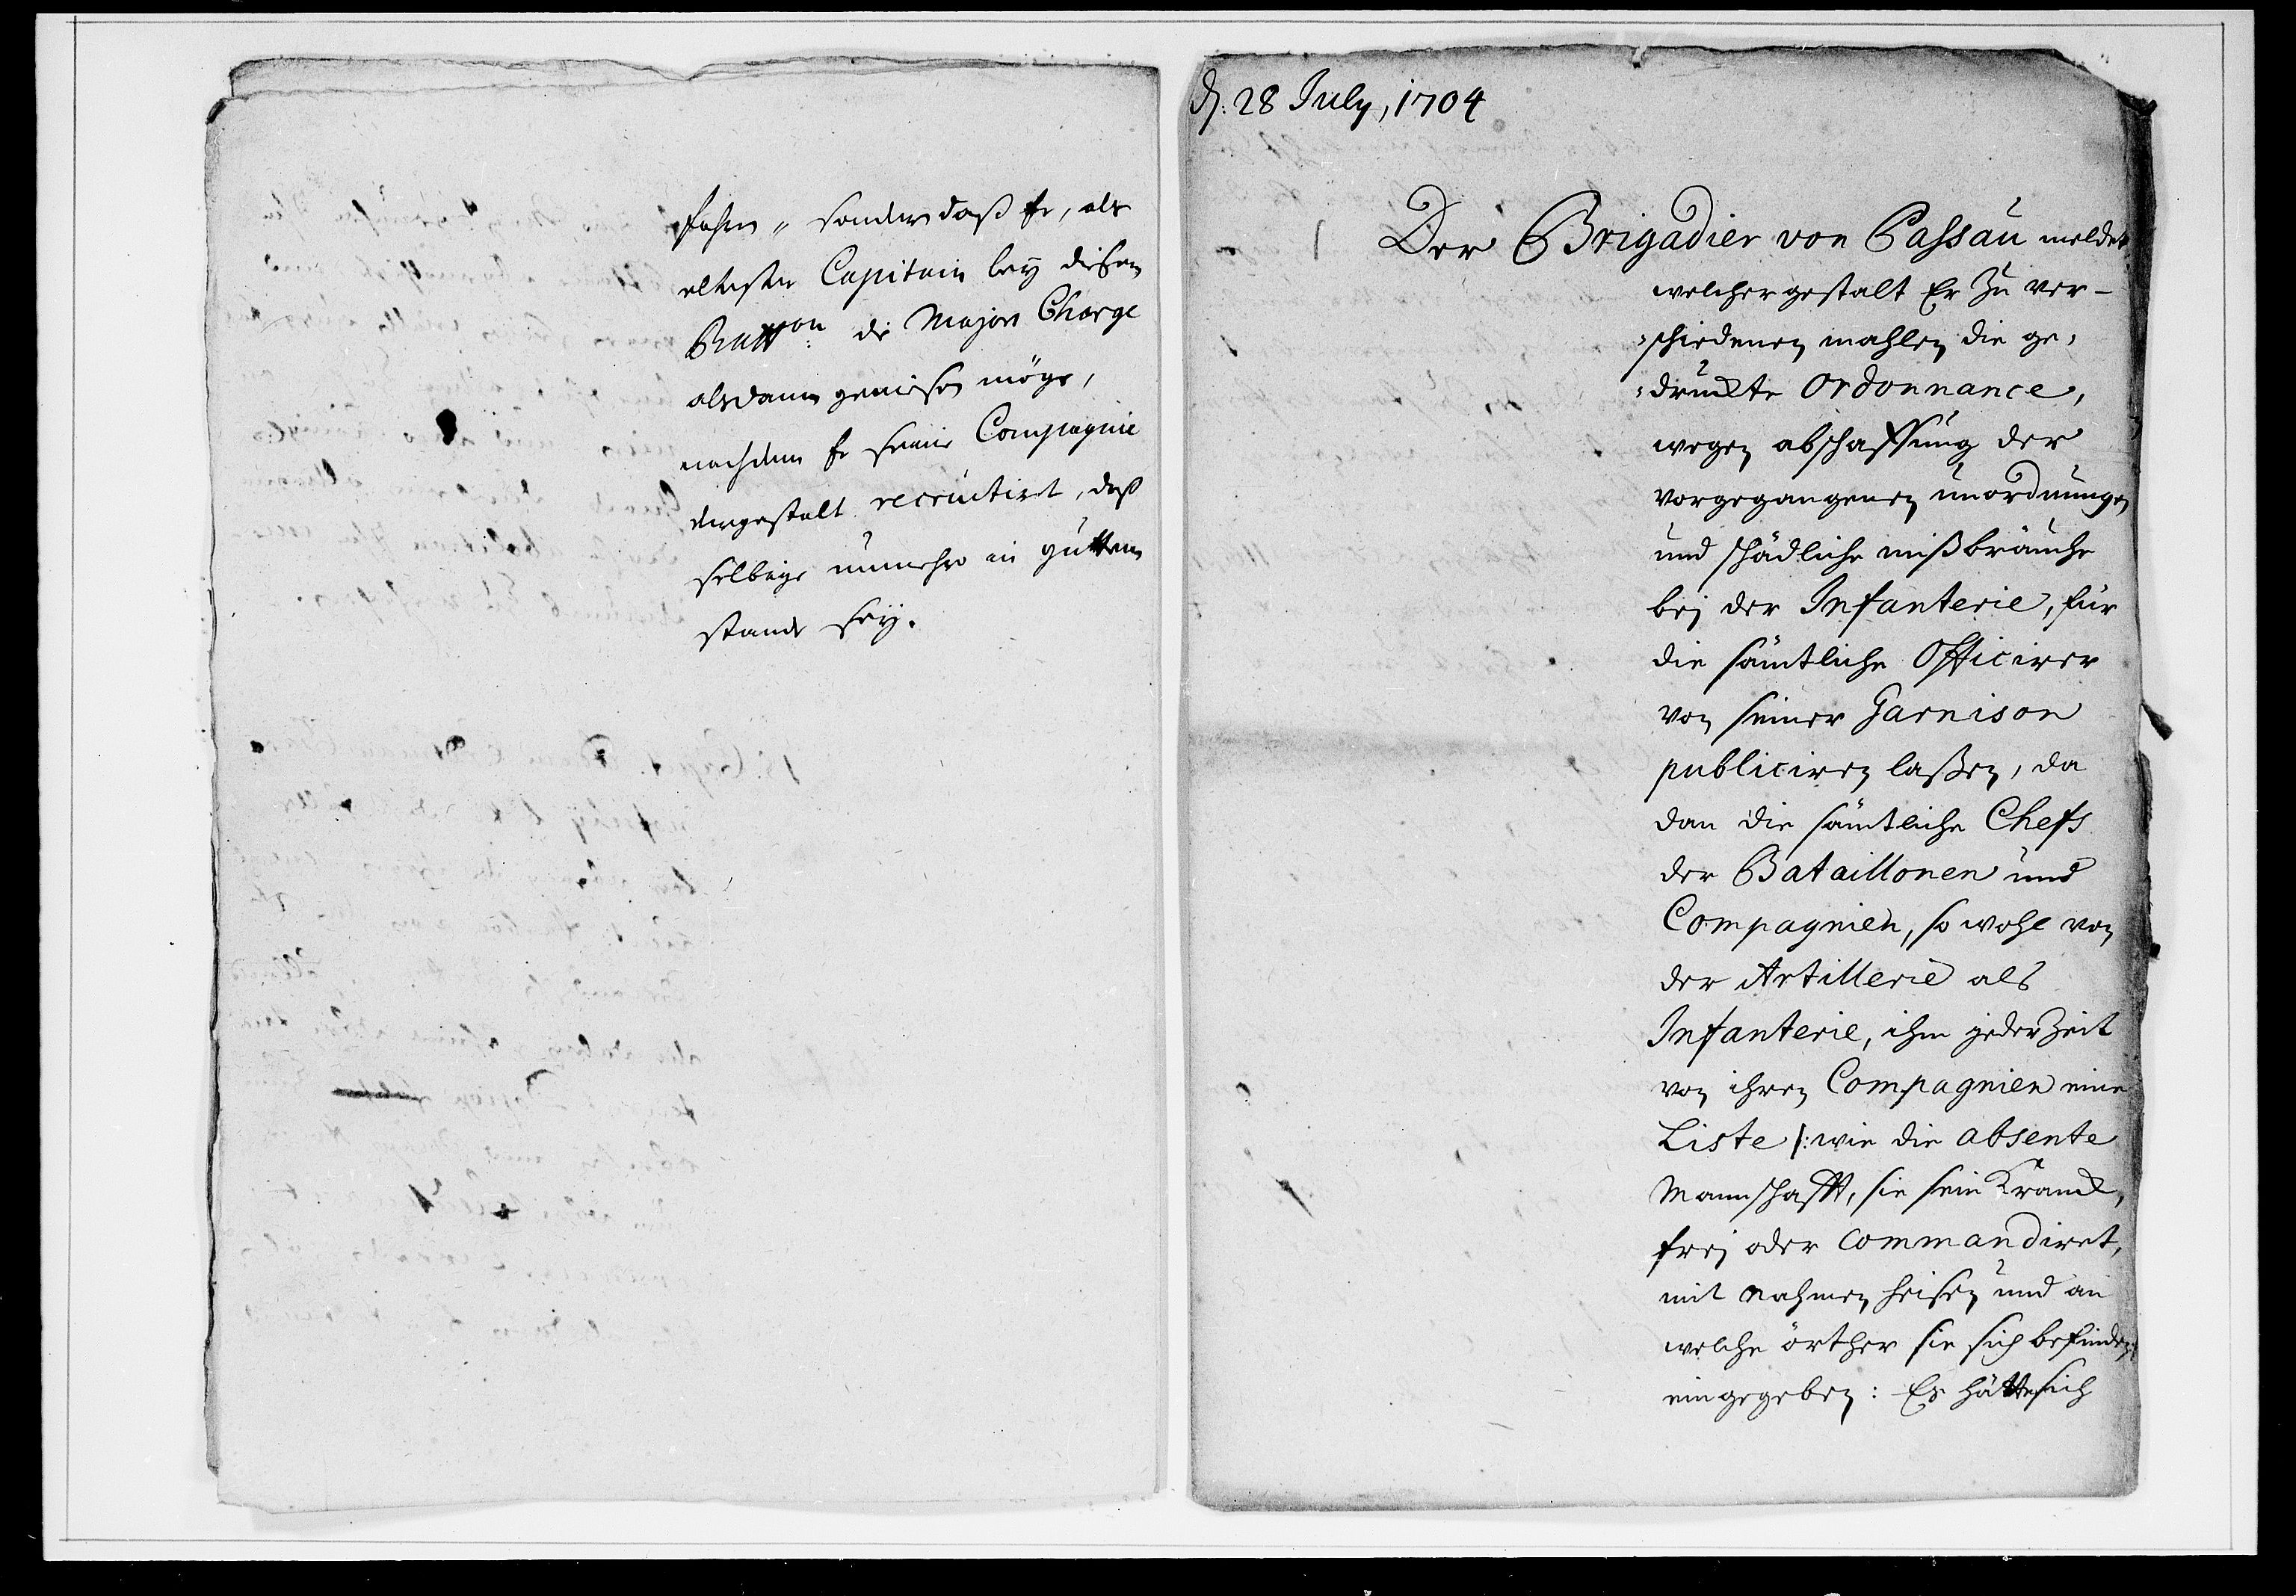 sehen, sondern daß Er, als
eltester Capitain bey diesem
Batt:on die Majors Charge
alsdann geniesen möge,
nachdem Er seine Compagnie
dergestalt recrutiret, daß
selbige nunmehro in guttem
stande sey.
d. 28 July, 1704
Der Brigadier von Passau meldet
welchergestalt Er Zu ver-
schiedenen mahlen die ge-
druckte Ordonnance,
wegen abschaffung der
vorgegangenen unordnungen
und schädliche mißbräuche
bei der Infanterie, für
die sämtliche Officirer
von seiner Garnison
publiciren laßen, da
dan die sämtliche Chefs
der Bataillonen und
Compagnien, so wohl von
der Artillerie als
Infanterie, ihm jederZeit
von ihren Compagnien eine
Liste /: wie die absente
Mannschafft, sie sein Kranck,
frei oder commandiret,
mit nahmen heisen und an
welche örther sie sich befinden
eingegeben: Es hätte sich